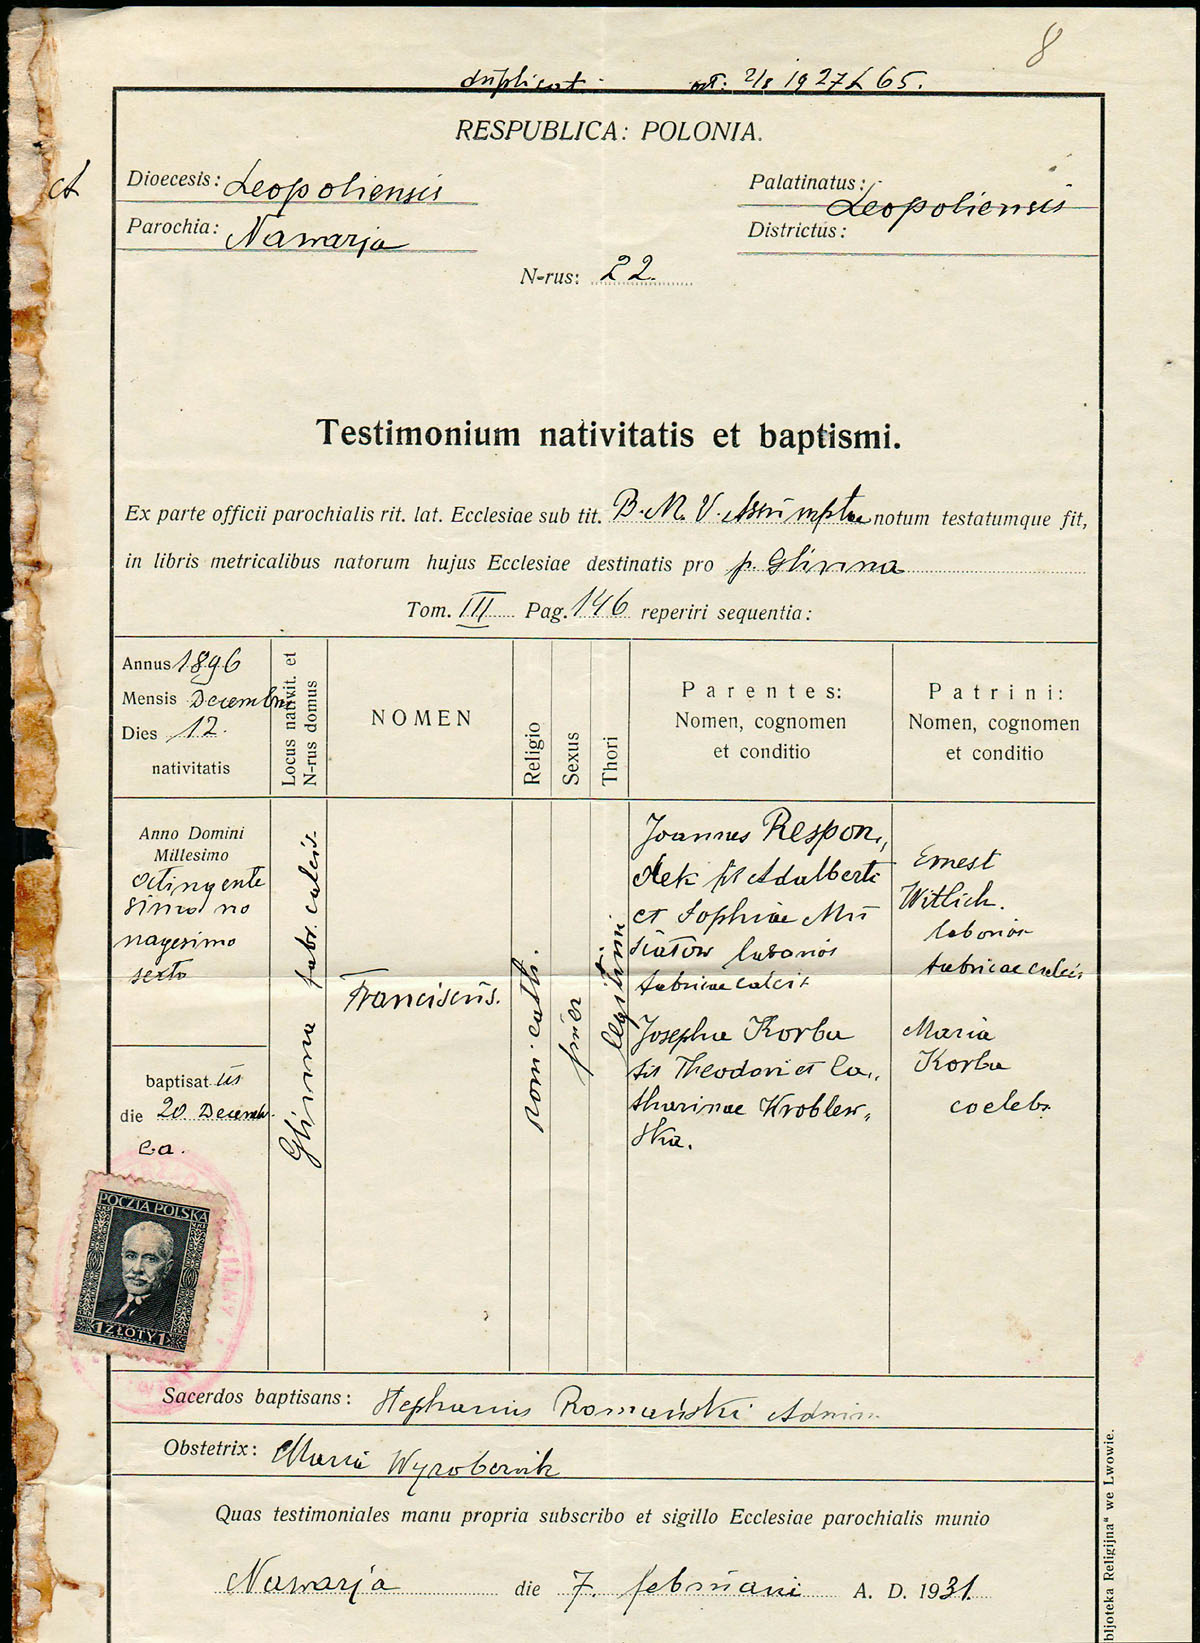 8
duplicat. 2/8 1927 L 65.
RESPUBLICA: POLONIA.
Dioecesis: Leopoliensis
Palatinatus: Leopoliensis
Parochia: Nawarja
Districtus:
N-rus: 22.
Testimonium nativitatis et baptismi.
Ex parte officii parochialis rit. lat. Ecclesiae sub tit. B. M. V. Assumptae notum testatumque fit,
in libris metricalibus natorum hujus Ecclesiae destinatis pro p. Glinna
Tom. III Pag. 146 reperiri sequentia:
Annus 1896
Mensis Decembris
Dies 12.
nativitatis
Locus nativit. et
N-rus domus
NOMEN
Religio
Sexus
Thori
Parentes:
Nomen, cognomen
et conditio
Patrini:
Nomen, cognomen
et conditio
Anno Domini
Millesimo
octingente
simo no
nagesimo
sexto
baptisat us
die 20. Decemb.
e.a.
Glinna fabr. calcis.
Franciscus.
rom. cath.
puer
legitimi
Joannes Respon,,
dek fil Adalberti
et Sophiae Mu
siatów laborios
fabricae calcis
Josepha Korba
fil Theodori et Ca,,
tharinae Kroblew,,
ska.
Ernest
Witlich.
laborios
fabricae calcis
Maria
Korba
coelebs
POCZTA POLSKA
1 ZŁOTY 1
Sacerdos baptisans: Stephanus Romański Admin
Obstetrix: Maria Wyrobernik
Quas testimoniales manu propria subscribo et sigillo Ecclesiae parochialis munio
Nawarja die 7. februarii A. D. 1931.
bljoteka Religijna" we Lwowie.